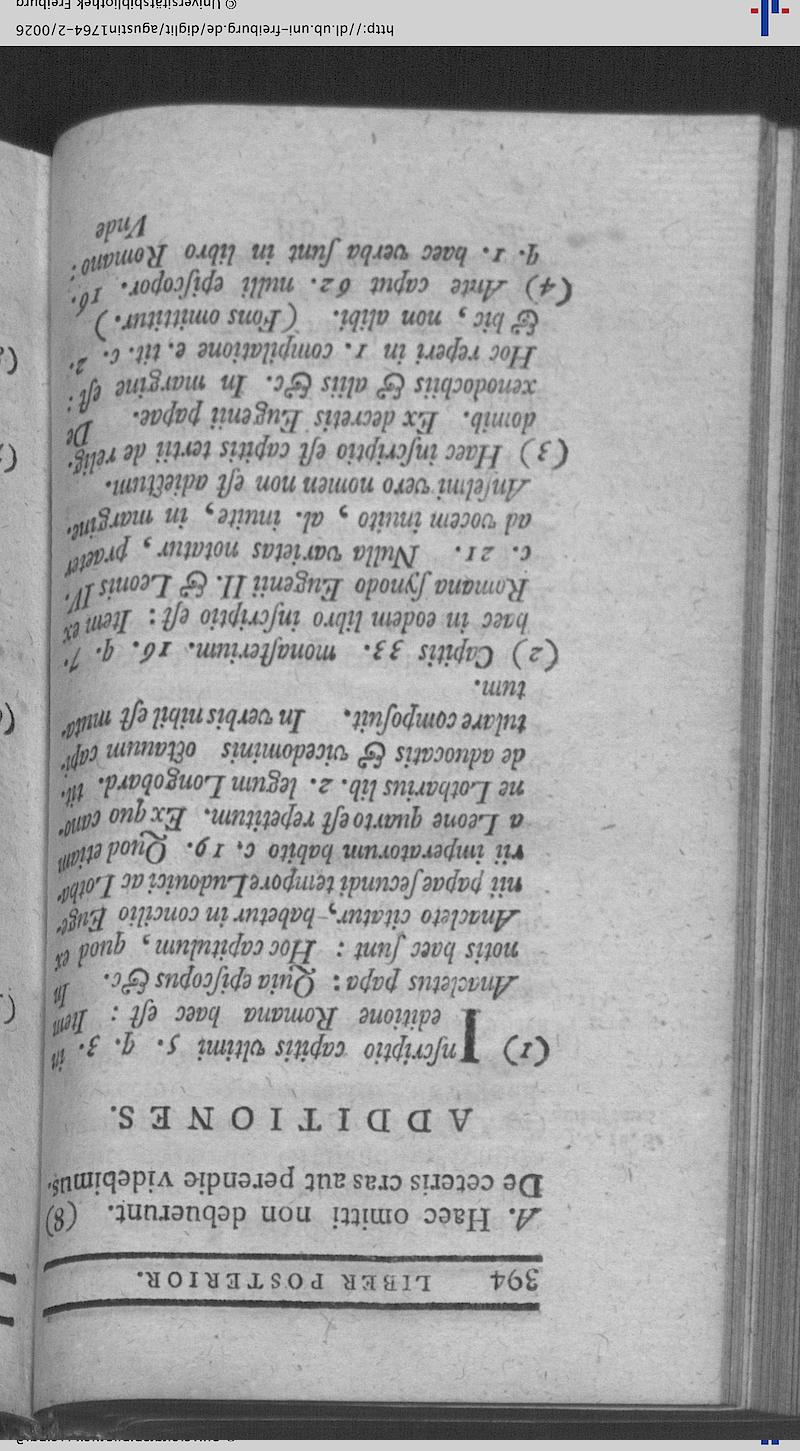 394 LIBER POSTERIOR.
A. Haec omitti non debuerunt. (8)
De ceteris cras aut perendie videbimus.
ADDITIONES.
(1) Inſcriptio capitis vltimi 5. q. 3. in
editione Romana haec eſt: Item
Anacletus papa: Quia epiſcopus &c. In
notis haec ſunt: Hoc capitulum, quod ex
Anacleto citatur, habetur in concilio Euge-
nii papae ſecundi tempore Ludouici ac Lotha-
rii imperatorum habito c. 19. Quod etiam
a Leone quarto eſt repetitum. Ex quo cano-
ne Lotharius lib. 2. legum Longobard. tit.
de aduocatis & vicedominis octauum capi-
tulare compoſuit. In verbis nihil eſt muta-
tum.
(2) Capitis 33. monaſterium. 16. q. 7.
haec in eodem libro inſcriptio eſt: Item ex
Romana ſynodo Eugenii II. & Leonis IV.
c. 21. Nulla varietas notatur, praeter
ad vocem inuito, al. inuite, in margine.
Anſelmi vero nomen non eſt adiectum.
(3) Haec inſcriptio eſt capitis tertii de relig.
domib. Ex decretis Eugenii papae. De
xenodochiis & aliis &c. In margine eſt:
Hoc reperi in 1. compilatione e. tit. c. 2.
& hic, non alibi. (Fons omittitur.)
(4) Ante caput 62. nulli epiſcopor. 16.
q. 1. haec verba ſunt in libro Romano:
Vnde
http://dl.ub.uni-freiburg.de/diglit/agustin1764-2/0026
© Universitätsbibliothek Freiburg